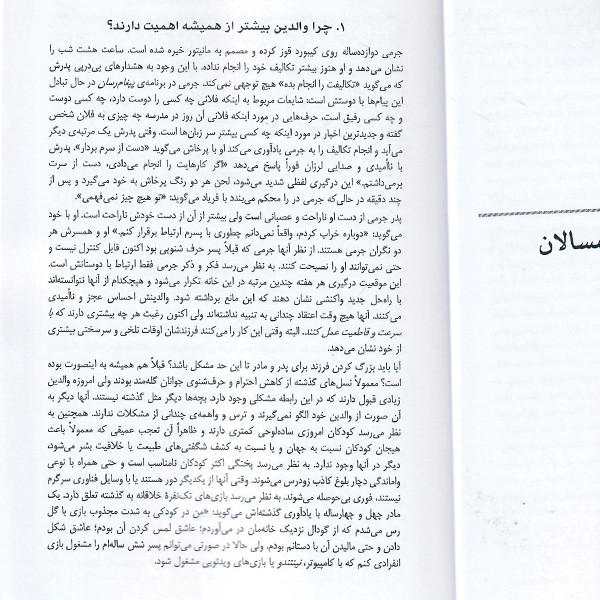 ۱. چرا والدین بیشتر از همیشه اهمیت دارند؟
جرمی دوازده‌ساله روی کیبورد قوز کرده و مصمم به مانیتور خیره شده است. ساعت هشت شب را
نشان می‌دهد و او هنوز بیشتر تکالیف خود را انجام نداده. با این وجود به هشدارهای پی‌درپی پدرش
که می‌گوید «تکالیفت را انجام بده» هیچ توجهی نمی‌کند. جرمی در برنامه‌ی پیغام‌رسان در حال تبادل
این پیام‌ها با دوستش است: شایعات مربوط به اینکه فلانی چه کسی را دوست دارد، چه کسی دوست
و چه کسی رفیق است، حرف‌هایی در مورد اینکه فلانی آن روز در مدرسه چه چیزی به فلان شخص
گفته و جدیدترین اخبار در مورد اینکه چه کسی بیشتر سر زبان‌ها است. وقتی پدرش یک مرتبه‌ی دیگر
می‌آید و انجام تکالیف را به جرمی یادآوری می‌کند او با پرخاش می‌گوید «دست از سرم بردار». پدرش
با ناامیدی و صدایی لرزان فوراً پاسخ می‌دهد «اگر کارهایت را انجام می‌دادی، دست از سرت
برمی‌داشتم.» این درگیری لفظی شدید می‌شود، لحن هر دو رنگ پرخاش به خود می‌گیرد و پس از
چند دقیقه در حالی‌که جرمی در را محکم می‌بندد با فریاد می‌گوید: «تو هیچ چیز نمی‌فهمی».
پدر جرمی از دست او ناراحت و عصبانی است ولی بیشتر از آن از دست خودش ناراحت است. او با خود
می‌گوید: «دوباره خراب کردم، واقعاً نمی‌دانم چطوری با پسرم ارتباط برقرار کنم.» او و همسرش هر
دو نگران جرمی هستند. از نظر آنها جرمی که قبلاً پسر حرف شنویی بود اکنون قابل کنترل نیست و
حتی نمی‌توانند او را نصیحت کنند. به نظر می‌رسد فکر و ذکر جرمی فقط ارتباط با دوستانش است.
این موقعیت درگیری هر هفته چندین مرتبه در این خانه تکرار می‌شود و هیچکدام از آنها نتوانسته‌اند
با راه‌حل جدید واکنشی نشان دهند که این مانع برداشته شود. والدینش احساس عجز و ناامیدی
می‌کنند. آنها هیچ وقت اعتقاد چندانی به تنبیه نداشته‌اند ولی اکنون رغبت هر چه بیشتری دارند که با
سرعت و قاطعیت عمل کنند. البته وقتی این کار را می‌کنند فرزندشان اوقات تلخی و سرسختی بیشتری
از خود نشان می‌دهد.
آیا باید بزرگ کردن فرزند برای پدر و مادر تا این حد مشکل باشد؟ قبلاً هم همیشه به اینصورت بوده
است؟ معمولاً نسل‌های گذشته از کاهش احترام و حرف‌شنوی جوانان گله‌مند بودند ولی امروزه والدین
زیادی قبول دارند که در این رابطه مشکلی وجود دارد. بچه‌ها دیگر مثل گذشته نیستند. آنها دیگر به
آن صورت از والدین خود الگو نمی‌گیرند و ترس و واهمه‌ی چندانی از مشکلات ندارند. همچنین به
نظر می‌رسد کودکان امروزی ساده‌لوحی کمتری دارند و ظاهراً آن تعجب عمیقی که معمولاً باعث
هیجان کودکان نسبت به جهان و یا نسبت به کشف شگفتی‌های طبیعت یا خلاقیت بشر می‌شود،
دیگر در آنها وجود ندارد. به نظر می‌رسد پختگی اکثر کودکان نامناسب است و حتی همراه با نوعی
واماندگی دچار بلوغ کاذب زودرس می‌شوند. وقتی آنها از یکدیگر دور هستند یا با وسایل فناوری سرگرم
نیستند، فوری بی‌حوصله می‌شوند. به نظر می‌رسد بازی‌های تک‌نفرۀ خلاقانه به گذشته تعلق دارد. یک
مادر چهل و چهارساله با یادآوری گذشته‌اش می‌گوید: «من در کودکی به شدت مجذوب بازی با گل
رس می‌شدم که از گودال نزدیک خانه‌مان در می‌آوردم؛ عاشق لمس کردن آن بودم؛ عاشق شکل
دادن و حتی مالیدن آن با دستانم بودم. ولی حالا در صورتی می‌توانم پسر شش ساله‌ام را مشغول بازی
انفرادی کنم که با کامپیوتر، نینتندو یا بازی‌های ویدئویی مشغول شود.